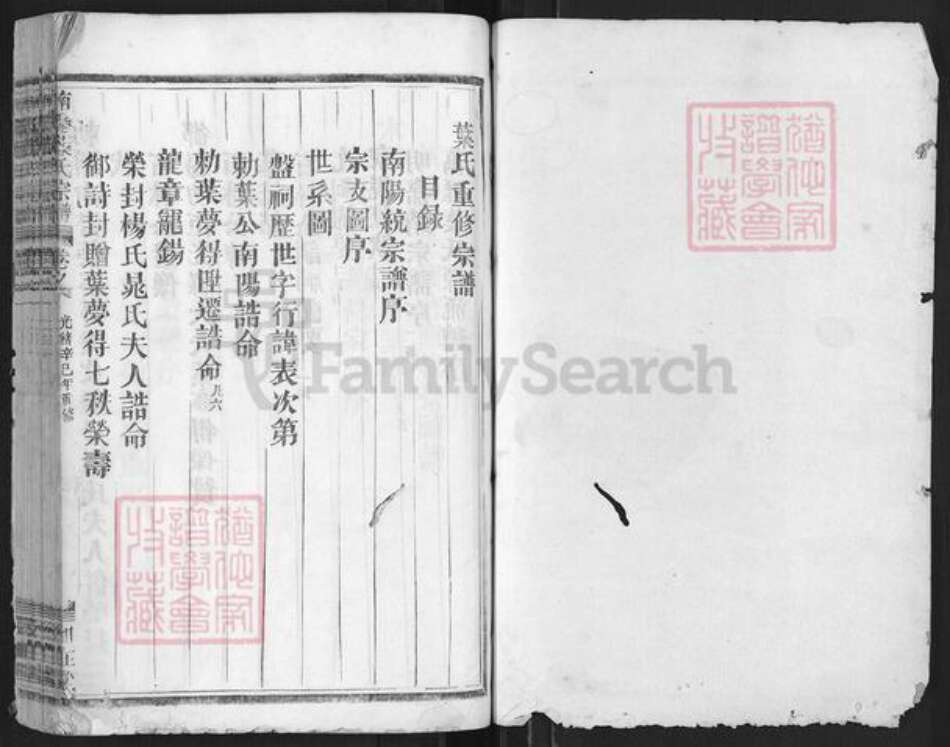 葉氏重修宗譜
目録
南陽統宗譜序
宗支圖序
世系圖
盤祠歷世字行諱表次第
勅葉公南陽誥命
勅葉夢得陞遷誥命九六
龍章寵錫
榮封楊氏晁氏夫人誥命
御詩封贈葉夢得七秩榮壽
南陽葉氏宗譜
光緒辛巳年重修
FamilySearch
猶他家譜學會收藏
猶他家譜學會收藏